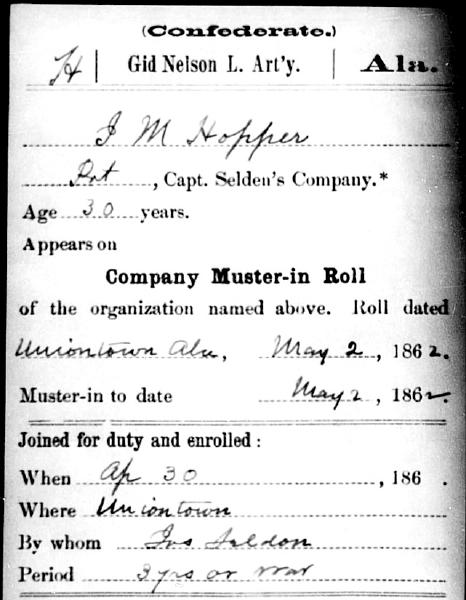 (Confederate.)
H | Gid Nelson L. Art'y. | Ala.
J M Hopper
Pvt, Capt. Selden's Company.*
Age 30 years.
Appears on
Company Muster-in Roll
of the organization named above. Roll dated
Uniontown Ala, May 2, 1862.
Muster-in to date May 2, 1862.
Joined for duty and enrolled:
When Ap 30, 186 .
Where Uniontown
By whom Jos Seldon
Period 3 yrs or war